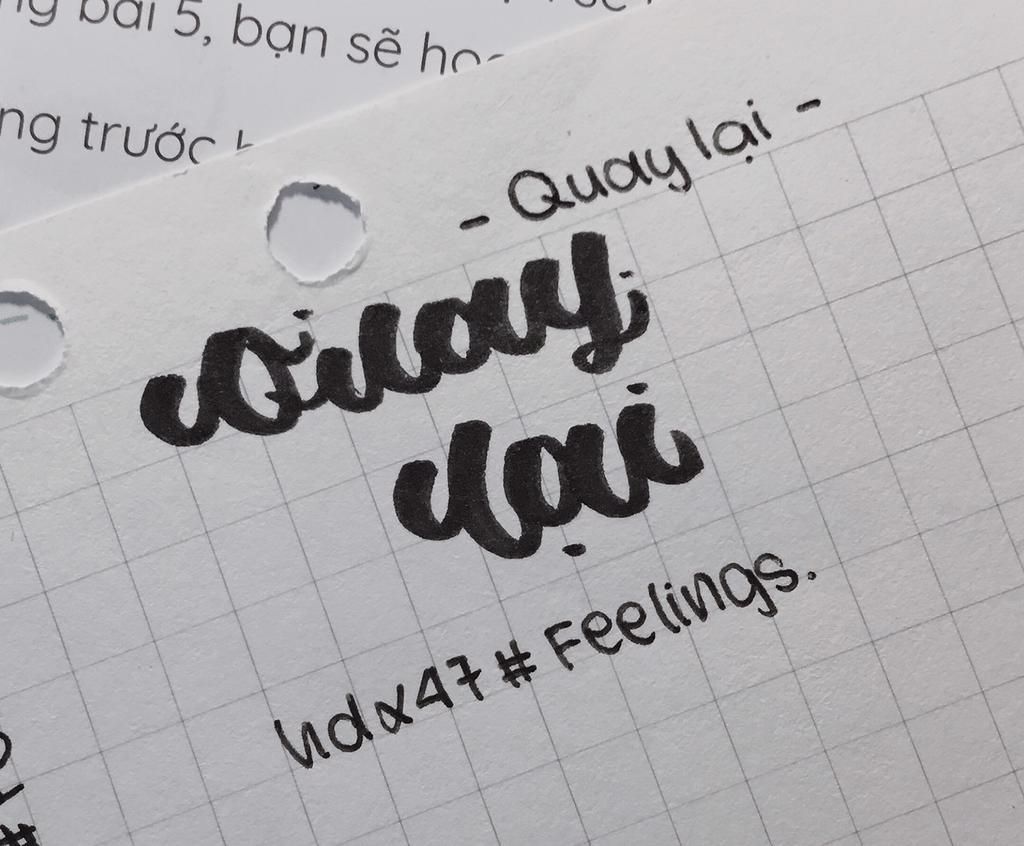 bài 5, bạn sẽ
trước
- Quay lại -
Quay
lại
hdx47 # Feelings.
#